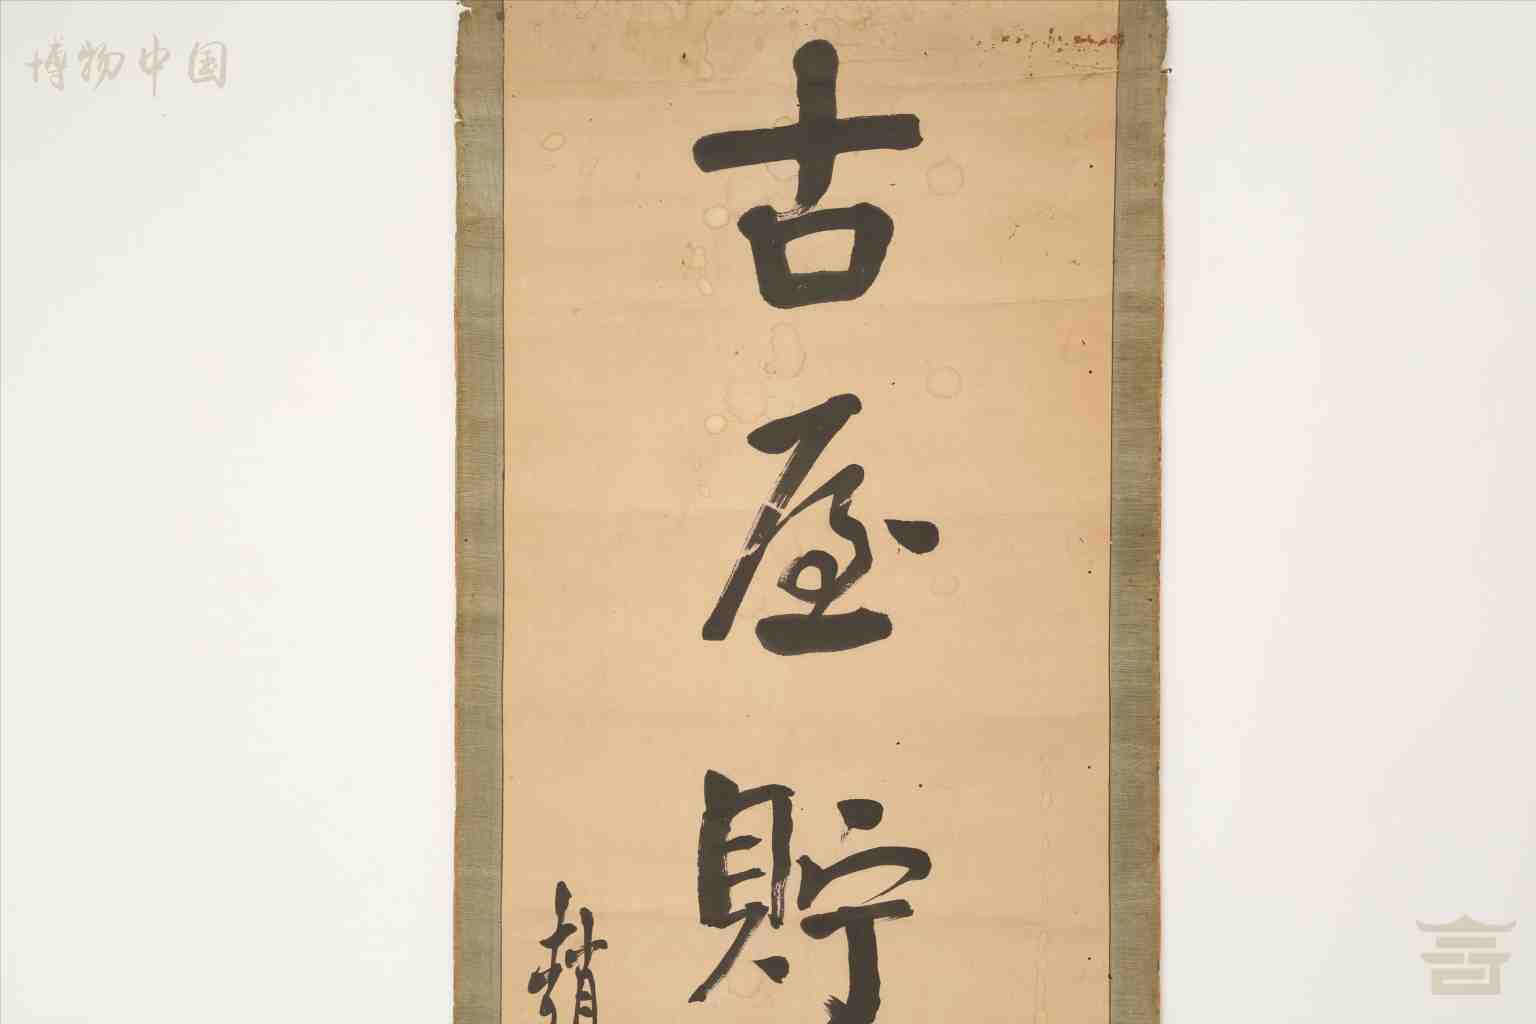 博物中国
古屋貯
趙